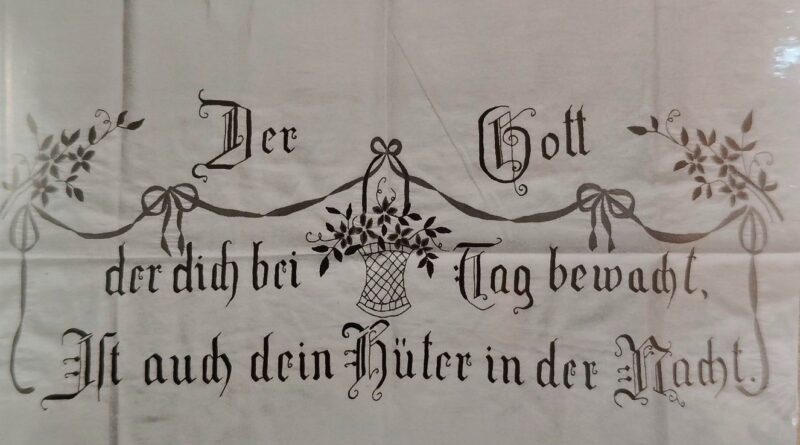 Der Gott
der dich bei Tag bewacht,
Ist auch dein Hüter in der Nacht.